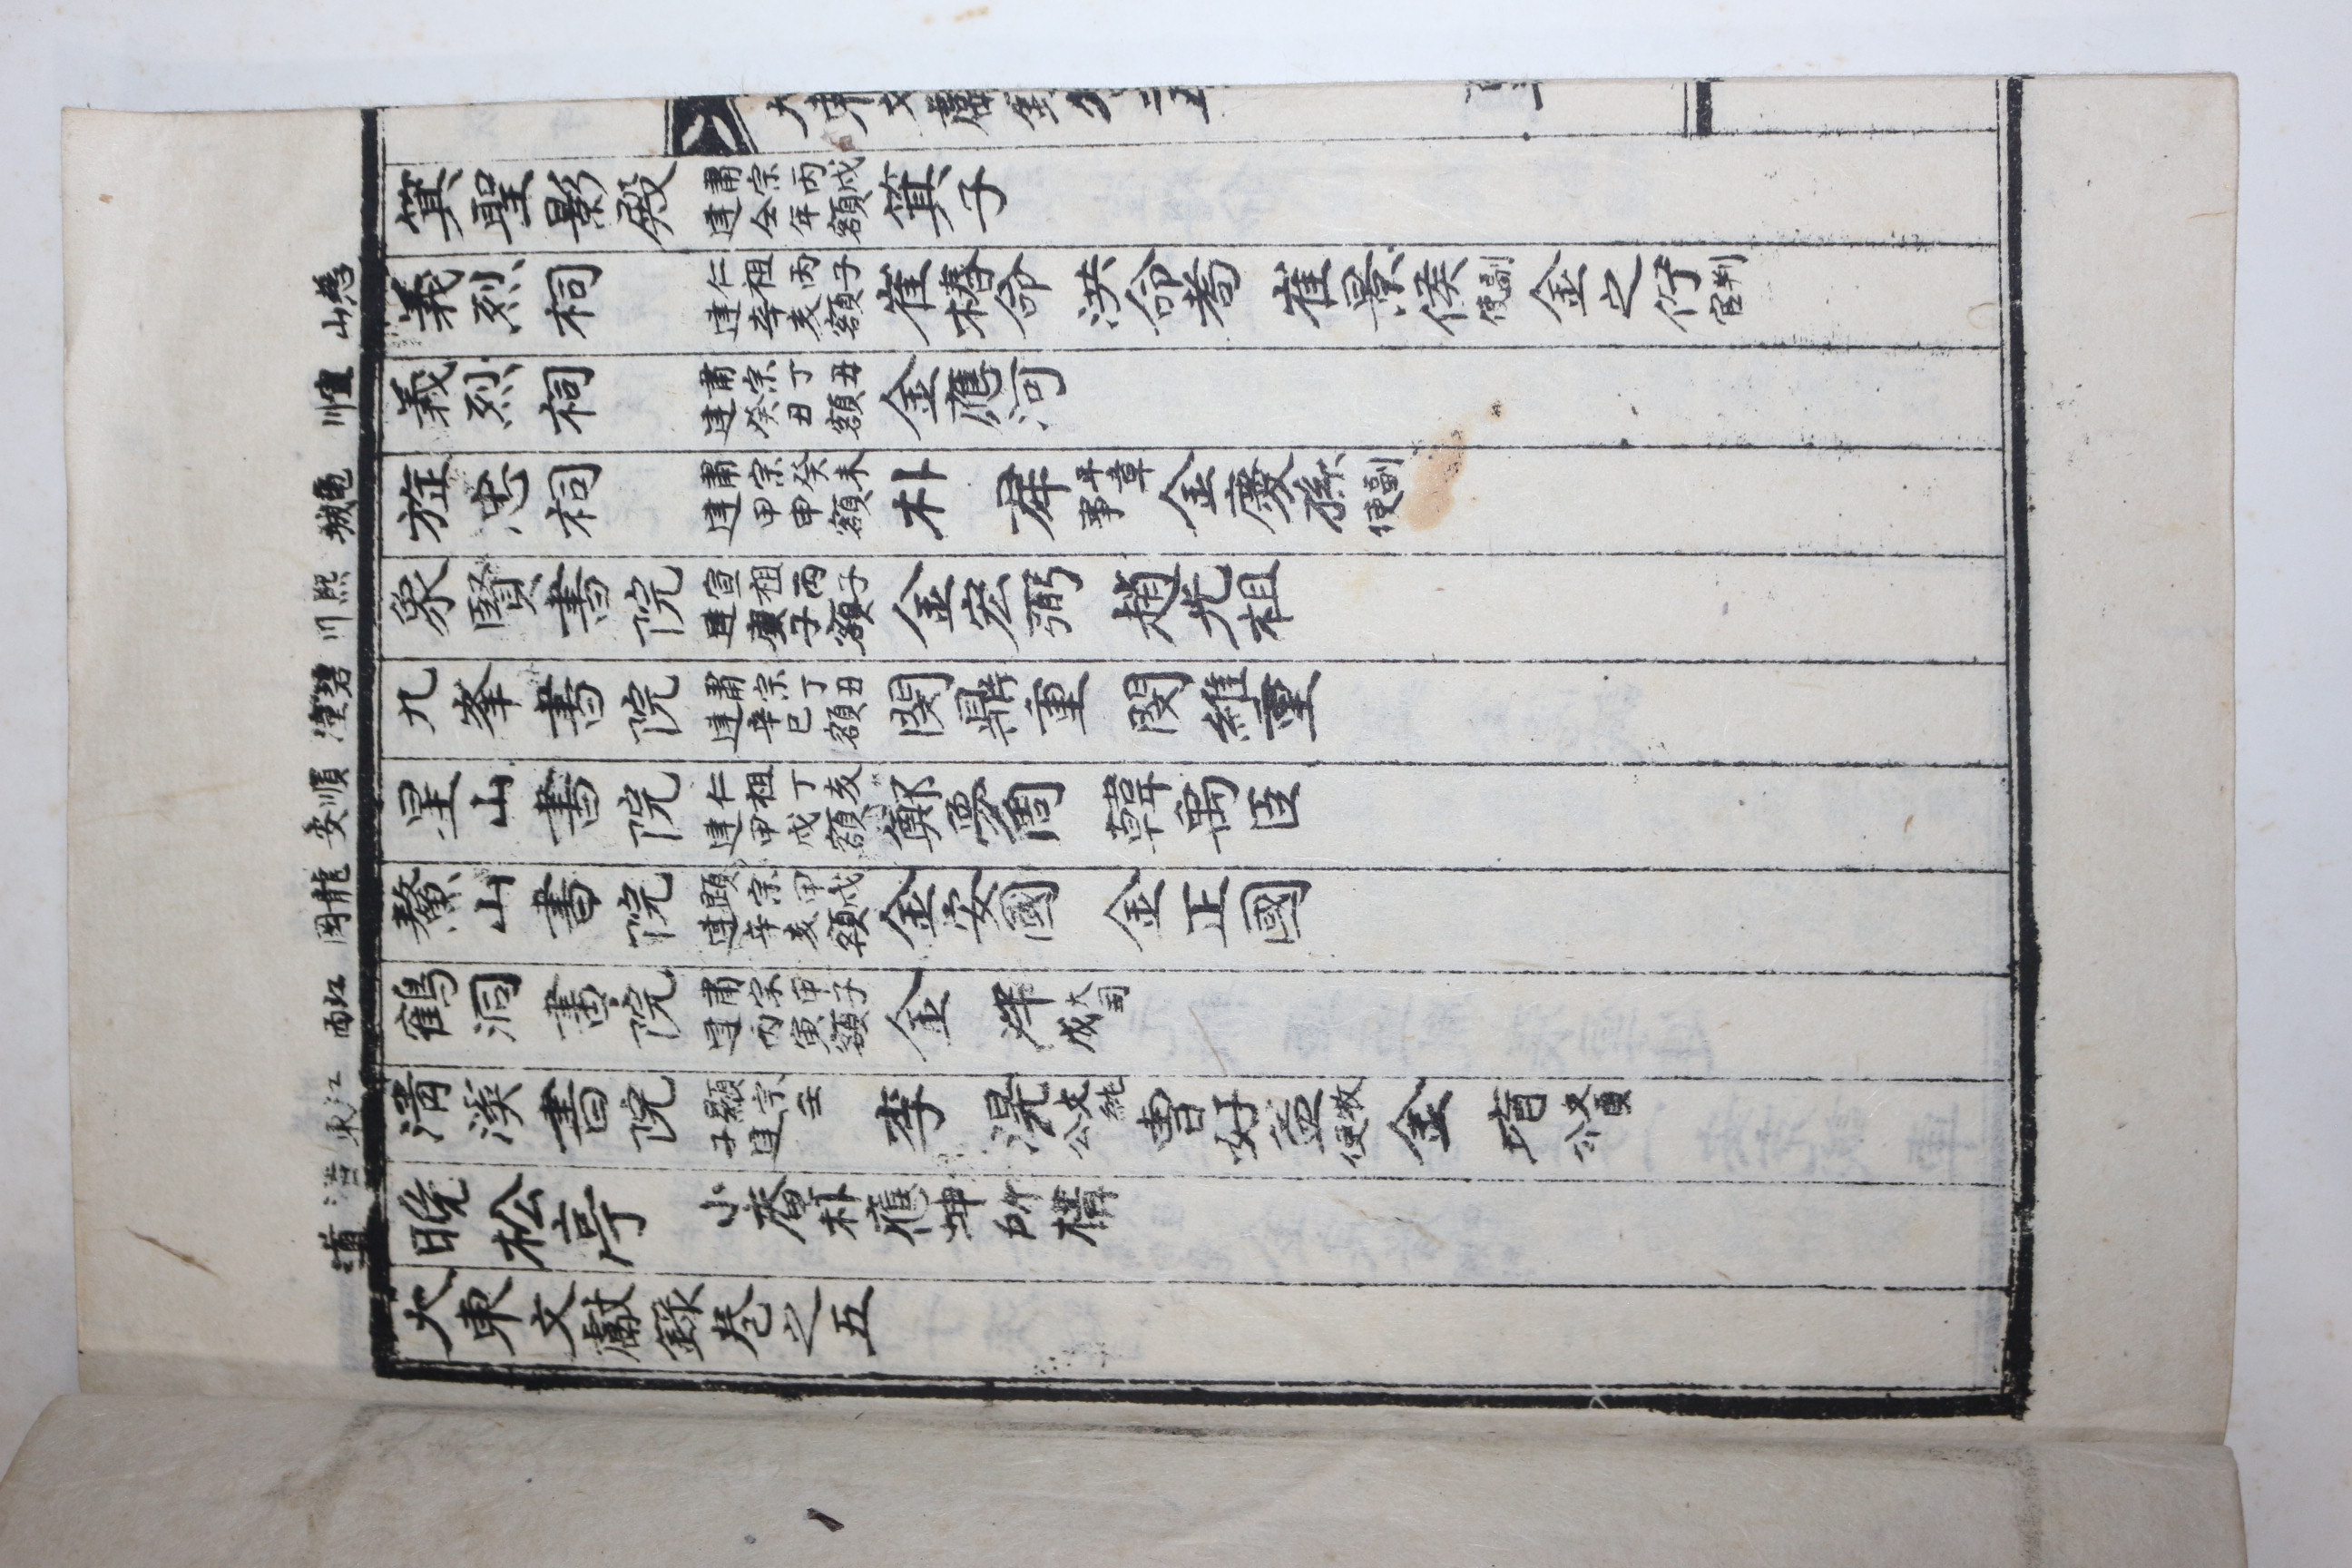 大東文獻錄卷之五
箕聖影殿 肅宗丙戌建仝年額 箕子
慈山 義烈祠 仁祖丙子建辛亥額 崔椿命 洪命耉 崔景侯 副使 金之佇 判官
宣川 義烈祠 肅宗丁丑建癸丑額 金應河
龜城 旌忠祠 肅宗癸未建甲申額 朴犀 平章事 金慶孫 副使
熙川 象賢書院 宣祖丙子建庚子額 金宏弼 趙光祖
碧潼 九峯書院 肅宗丁丑建辛巳額 閔鼎重 閔維重
順安 星山書院 仁祖丁亥建甲戌額 鄭夢周 韓禹臣
龍岡 鰲山書院 顯宗甲戌建辛亥額 金安國 金正國
江西 鶴洞書院 肅宗甲子建丙寅額 金 大司成
江東 淸溪書院 顯宗壬子建 李滉 文純公 曺好益 牧使 金堉 文貞公
道 晩松亭 小庵朴應坤所構
大東文獻錄卷之五